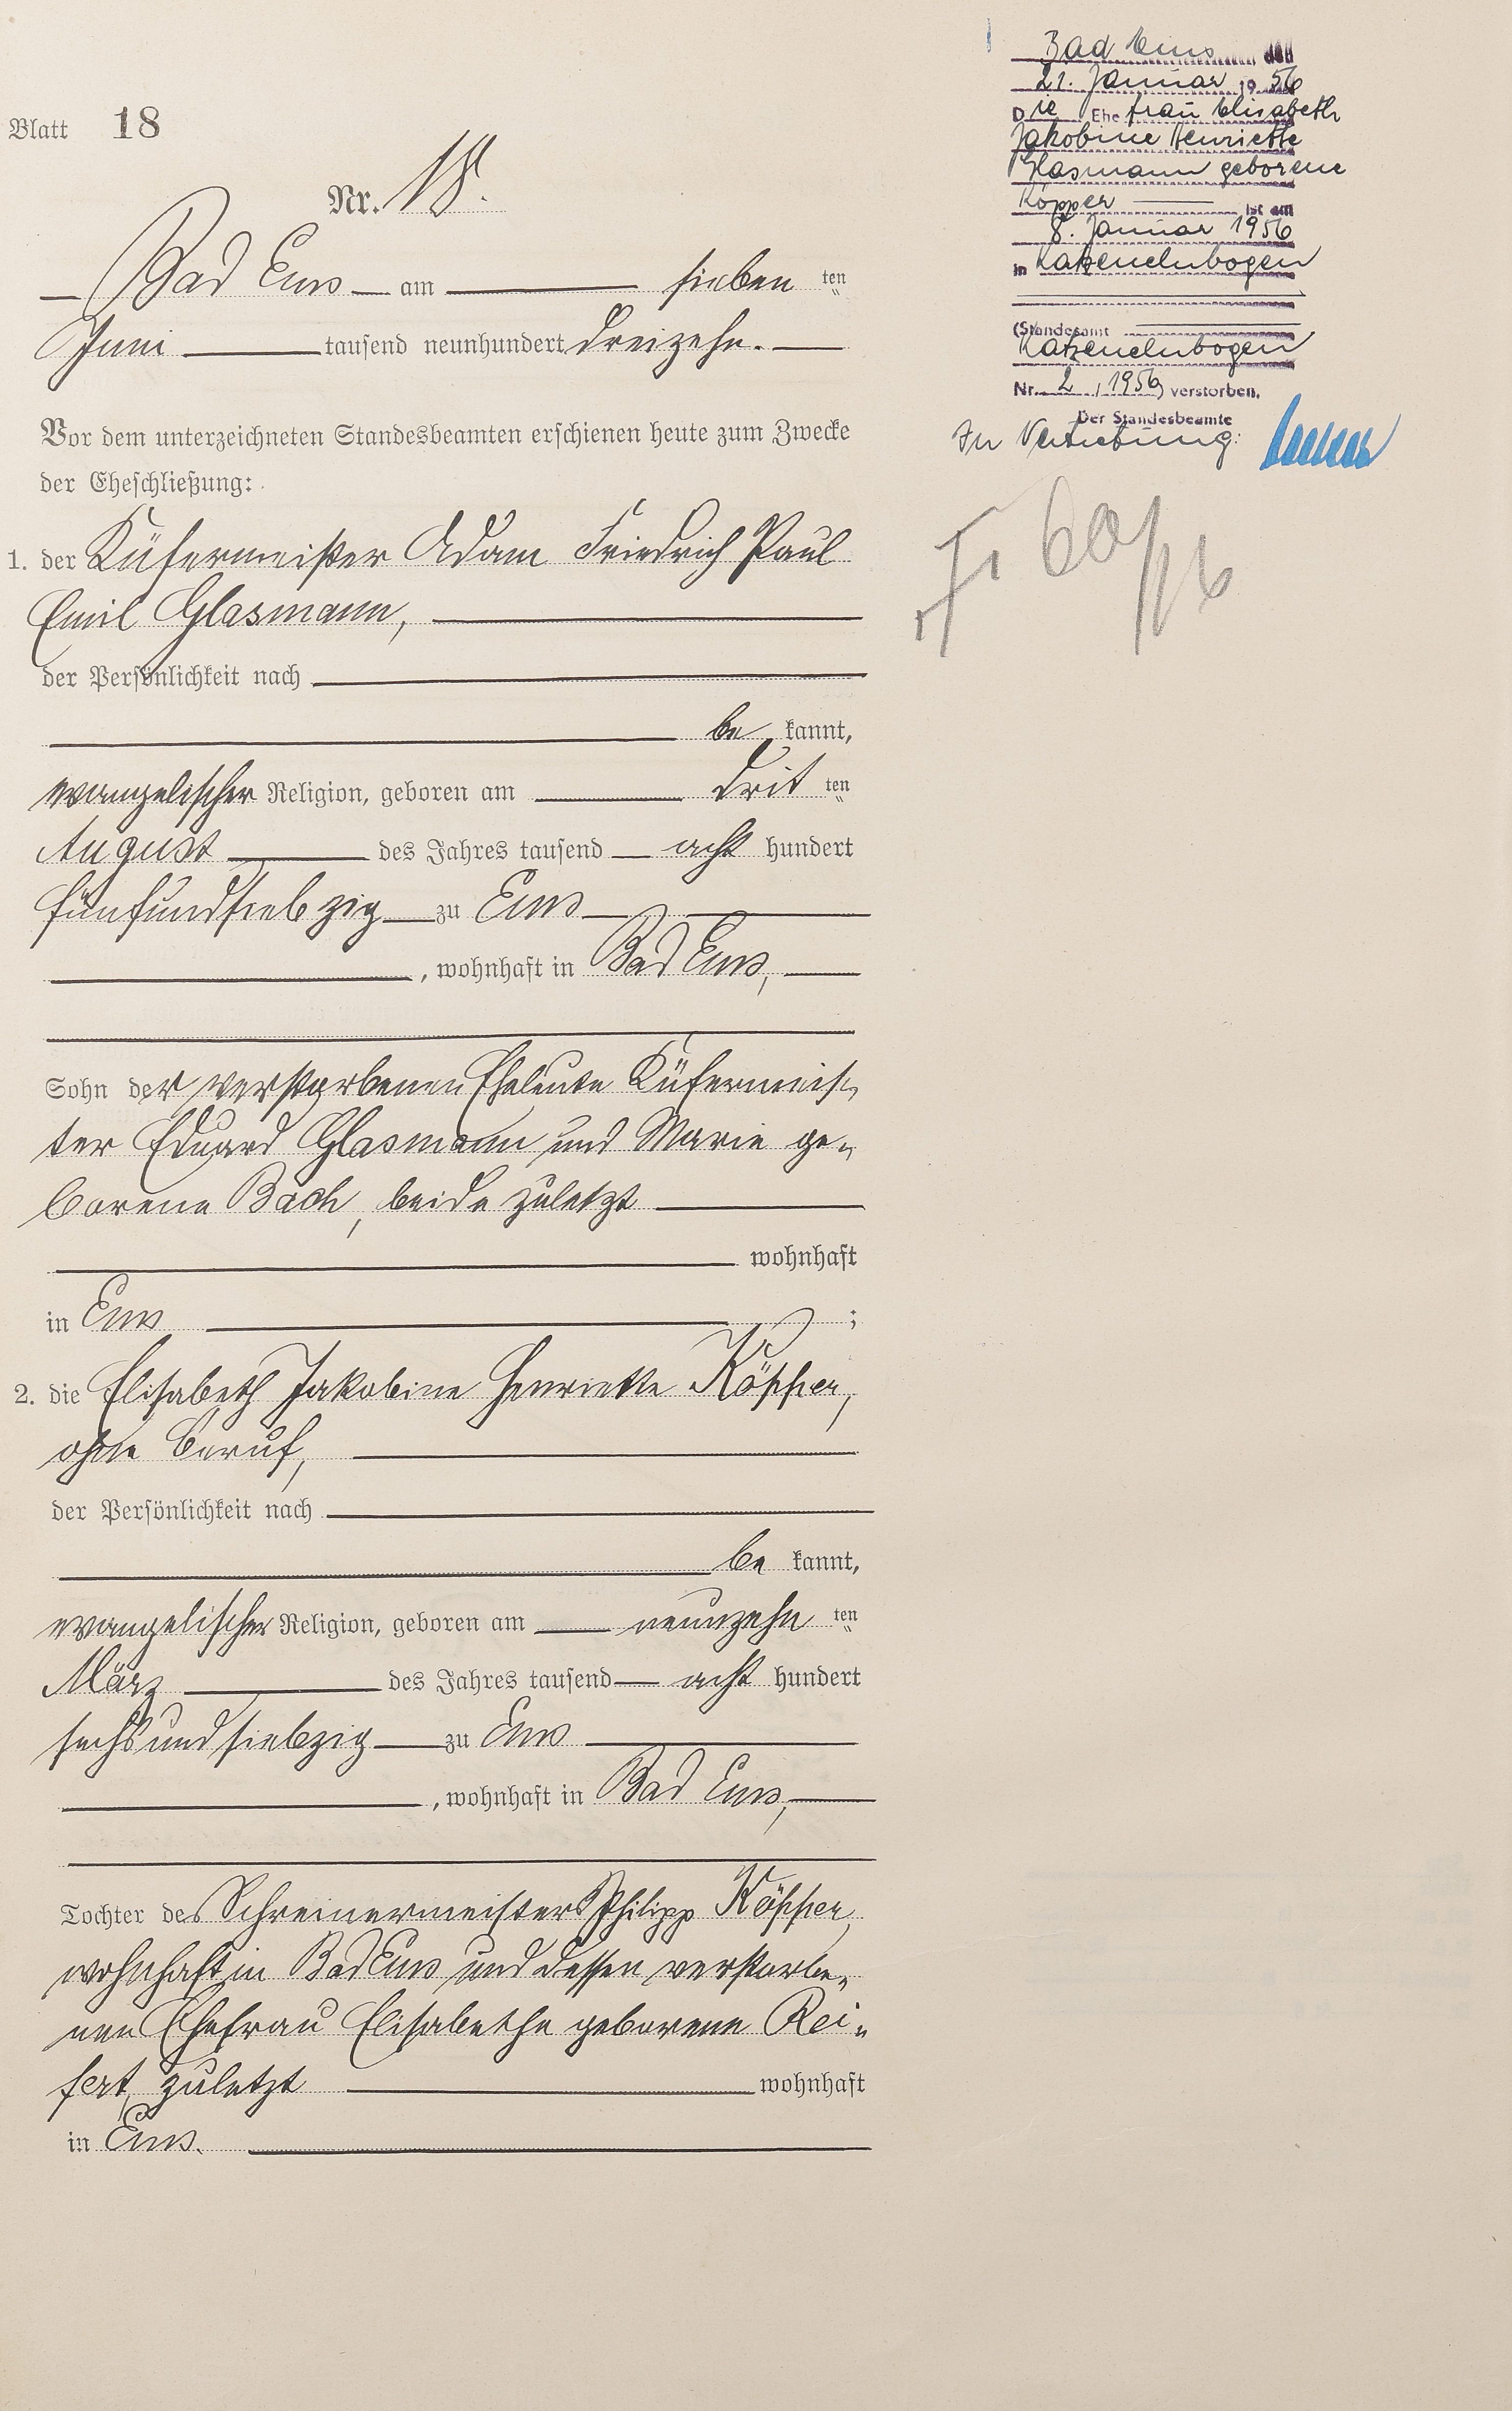 Blatt 18
Nr. 18.
Bad Ems am sieben ten
Juni tausend neunhundert dreizehn.
Vor dem unterzeichneten Standesbeamten erschienen heute zum Zwecke
der Eheschließung:
1. der Küfermeister Adam Friedrich Paul
Emil Glasmann,
der Persönlichkeit nach
be kannt,
evangelischer Religion, geboren am drit ten
August des Jahres tausend acht hundert
fünfundsiebzig zu Ems
, wohnhaft in Bad Ems,
Sohn der verstorbenen Eheleute Küfermeis-
ter Eduard Glasmann und Marie ge-
borene Bach, beide zuletzt
wohnhaft
in Ems ;
2. die Elisabeth Jakobine Henriette Köpper,
ohne Beruf,
der Persönlichkeit nach
be kannt,
evangelischer Religion, geboren am neunzehn ten
März des Jahres tausend acht hundert
sechsundsiebzig zu Ems
, wohnhaft in Bad Ems,
Tochter des Schreinermeisters Philipp Köpper,
wohnhaft in Bad Ems und dessen verstorbe-
nen Ehefrau Elisabethe geborene Rei-
fert, zuletzt wohnhaft
in Ems.
Bad Ems, den
21. Januar 19 56
Die Ehefrau Elisabeth
Jakobine Henriette
Glasmann geborene
Köpper ist am
8. Januar 1956
in Katzenelnbogen
(Standesamt
Katzenelnbogen
Nr. 2 / 1956) verstorben.
Der Standesbeamte
In Vertretung: